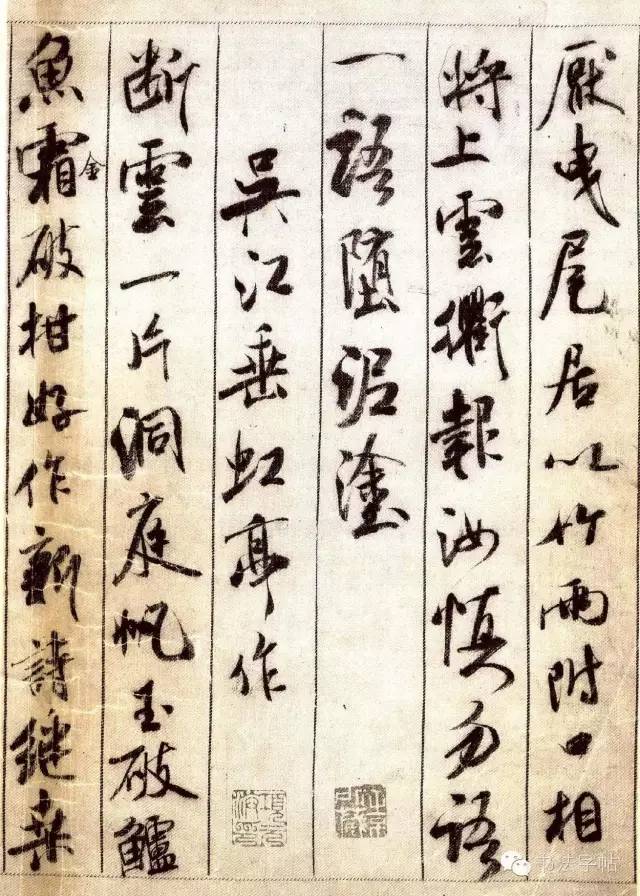 厭曳尾居以竹兩附口相
將上雲衢報汝慎勿語
一語墮泥塗
吳江垂虹亭作
断雲一片洞庭帆玉破鱸
魚霜破柑好作新詩継桒
金
书法字帖